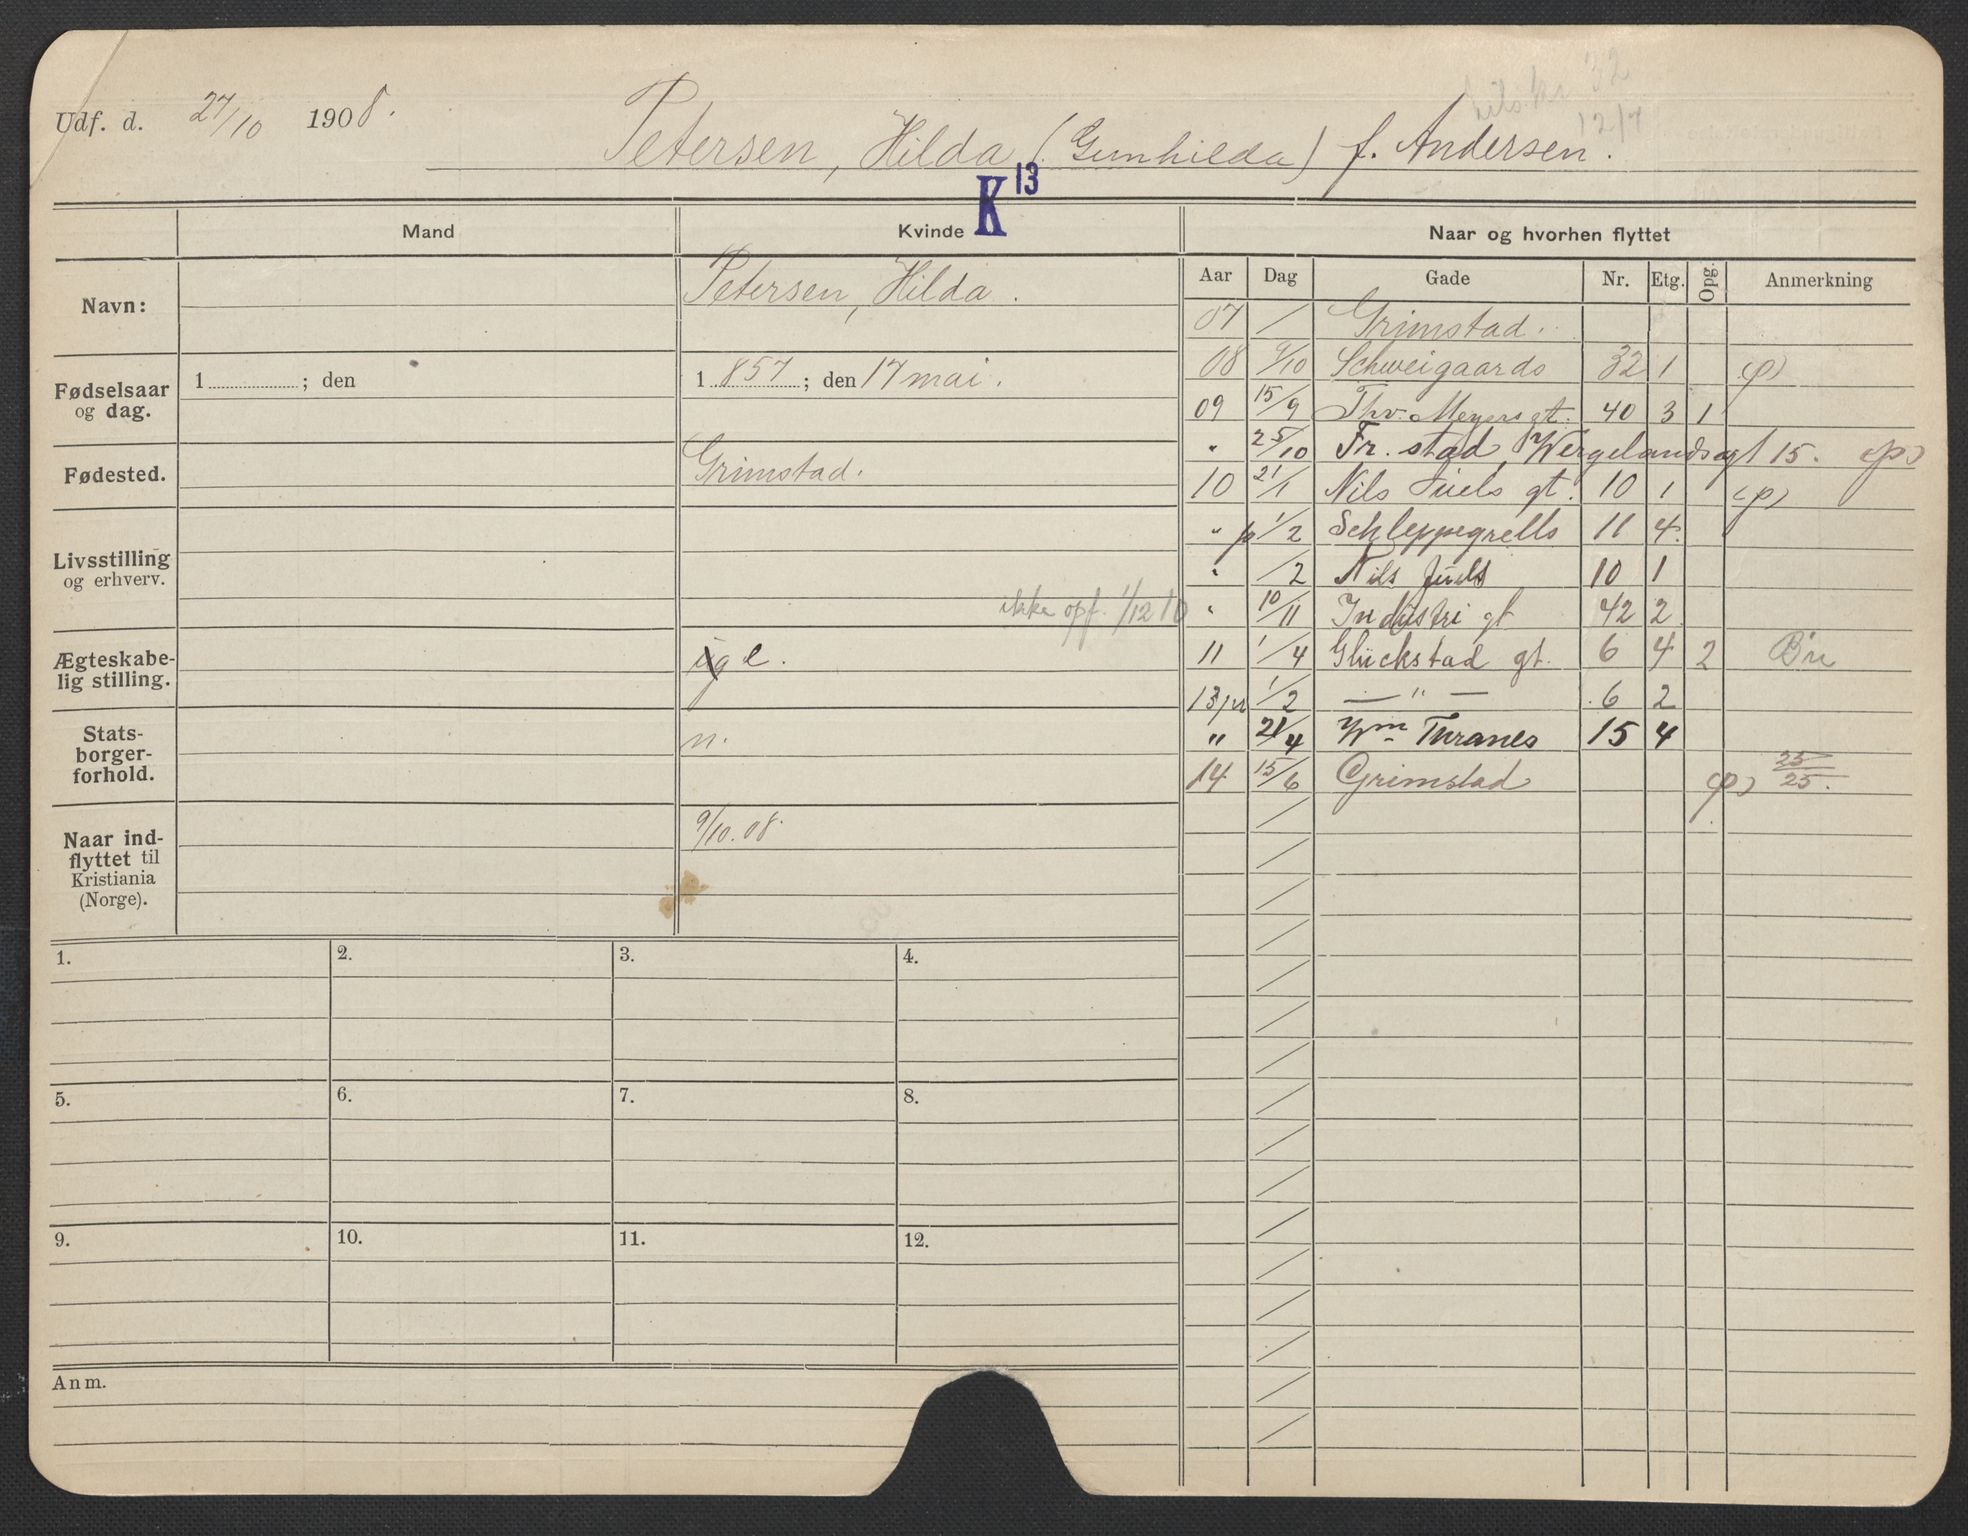 12/7
Udf. d. 27/10 1908.
Petersen, Hilda (Gunhilda) f. Andersen.
K 13
Mand Kvinde Naar og hvorhen flyttet
Aar Dag Gade Nr. Etg. Opg. Anmerkning
Navn: Petersen, Hilda.
Fødselsaar og dag. 1 ; den 1 857 ; den 17 mai.
Fødested. Grimstad.
Livsstilling og erhverv.
ikke opf. 1/12 10
Ægteskabelig stilling. e.
Statsborgerforhold. n.
Naar indflyttet til Kristiania (Norge). 9/10.08.
07 / Grimstad.
08 9/10 Schweigaards 32 1 (p)
09 15/9 Thv. Meyers gt. 40 3 1
" 25/10 Fr.stad, Wergelandsgt 15. (p)
10 21/1 Nils Juels gt. 10 1 (p)
" p 1/2 Schleppegrells 11 4.
" /2 Nils Juels 10 1
" 10/11 Industri gt 42 2
11 1/4 Glückstad gt. 6 4 2
13 pr 1/2 — " — 6 2
" 21/4 Wm Thranes 15 4
14 15/6 Grimstad (p) 25/25.
1. 2. 3. 4.
5. 6. 7. 8.
9. 10. 11. 12.
Anm.